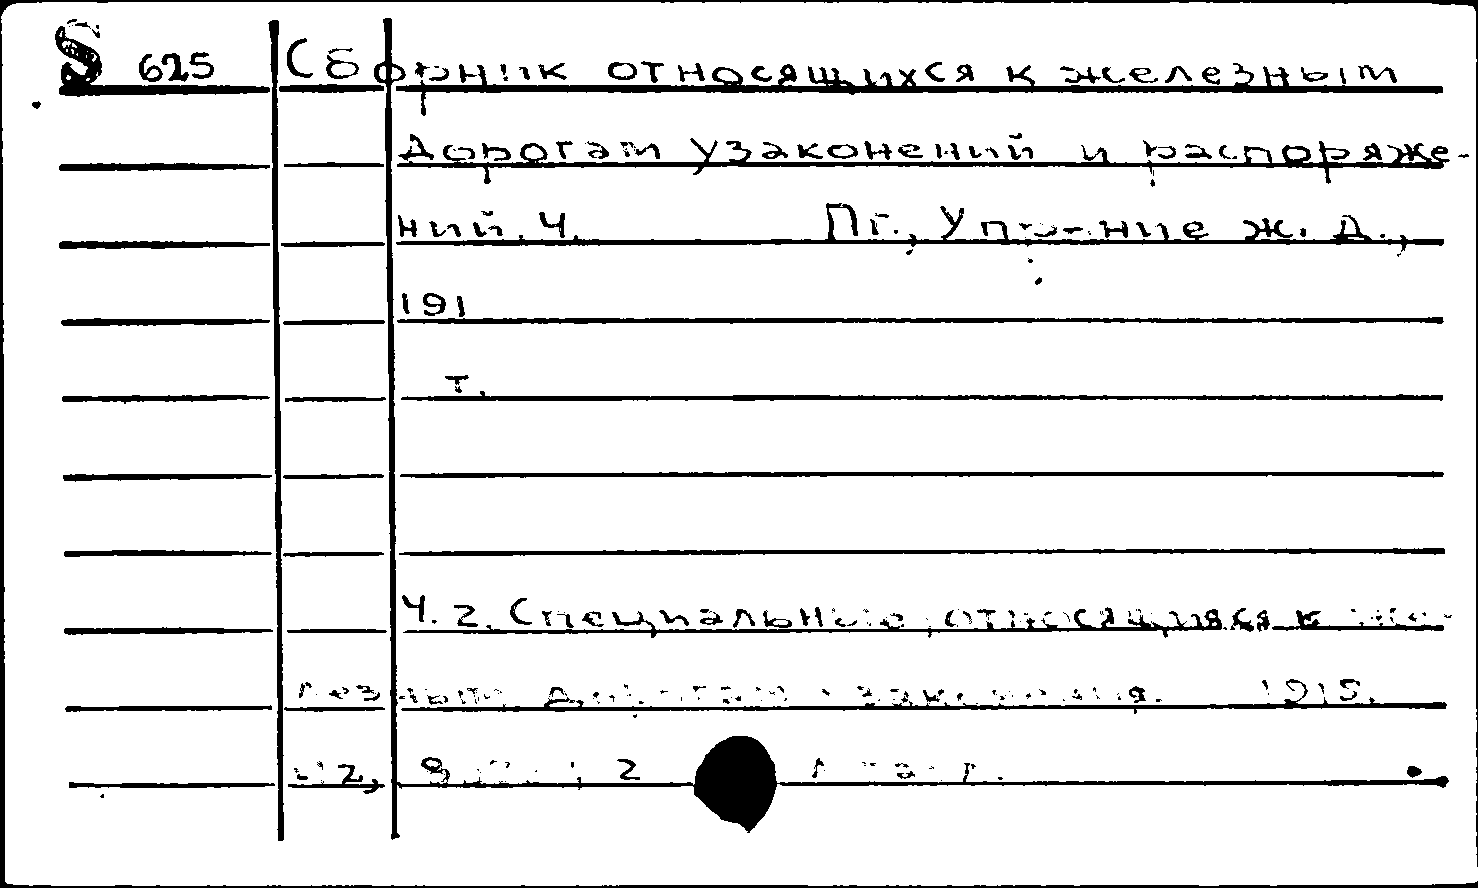 S 625 Сборник относящихся к железным
дорогам узаконений и распоряже-
ний. Ч. Пг., Упр-ние ж. д.,
191
т.
Ч. 2. Специальные, относящияся к же-
лезным дорогам узаконения. 1915.
2